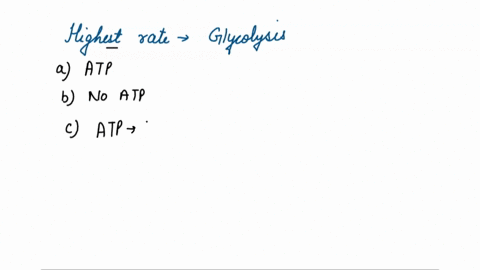 Highest rate → Glycolysis
a) ATP
b) No ATP
c) ATP →